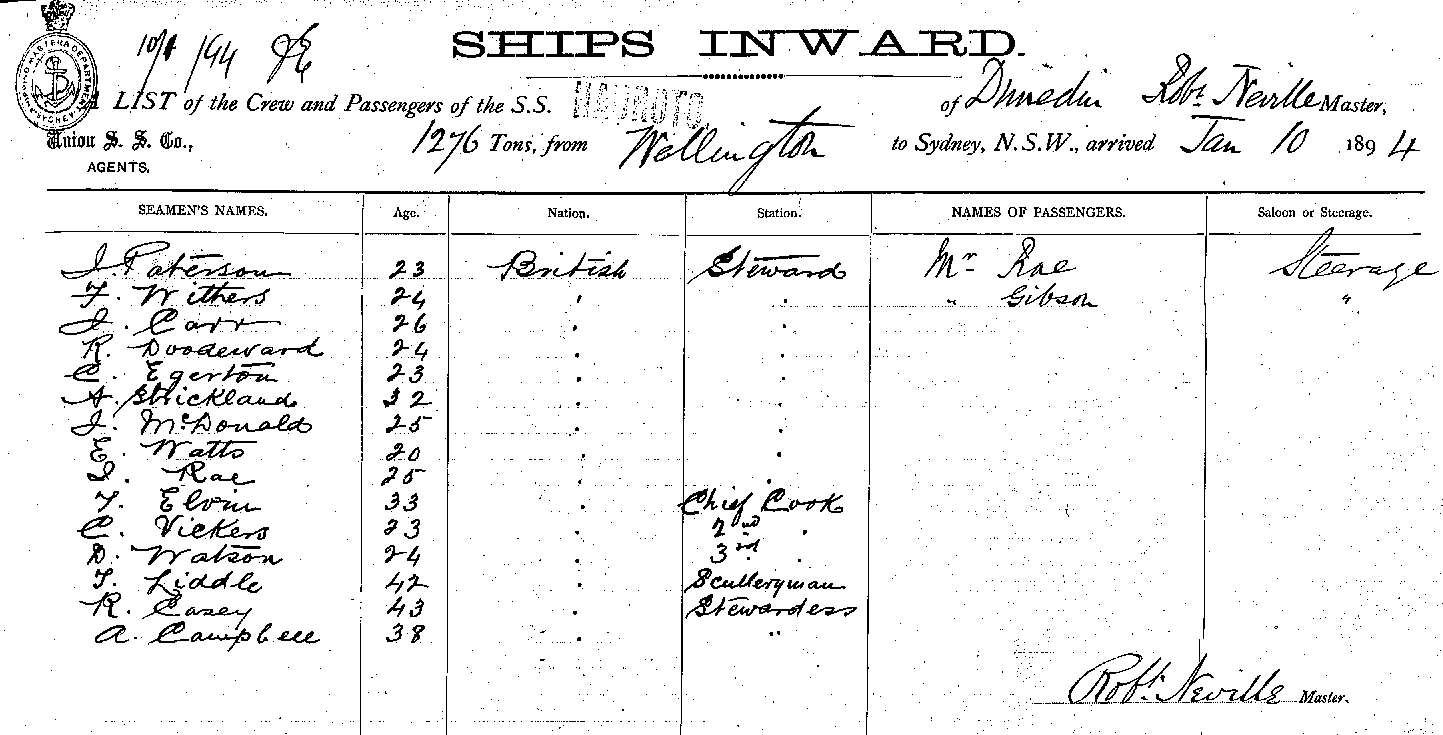 10/1/94 JE
SHIPS INWARD.
A LIST of the Crew and Passengers of the S.S. HAUROTO of Dunedin Robt. Neville Master,
Union S. S. Co., 1276 Tons, from Wellington to Sydney, N.S.W., arrived Jan 10 1894
AGENTS.
SEAMEN'S NAMES. Age. Nation. Station. NAMES OF PASSENGERS. Saloon or Steerage.
J. Paterson 23 British Steward Mr Rae Steerage
F. Withers 24 " " " Gibson "
J. Carr 26 " "
R. Doodeward 24 " "
C. Egerton 23 " "
A. Strickland 32 " "
J. McDonald 25 " "
E. Watts 20 " "
J. Rae 25 " "
T. Elvin 33 " Chief Cook
C. Vickers 23 " 2nd "
D. Watson 24 " 3rd "
T. Liddle 42 " Sculleryman
R. Casey 43 " Stewardess
A. Campbell 38 " "
Robt. Neville Master.